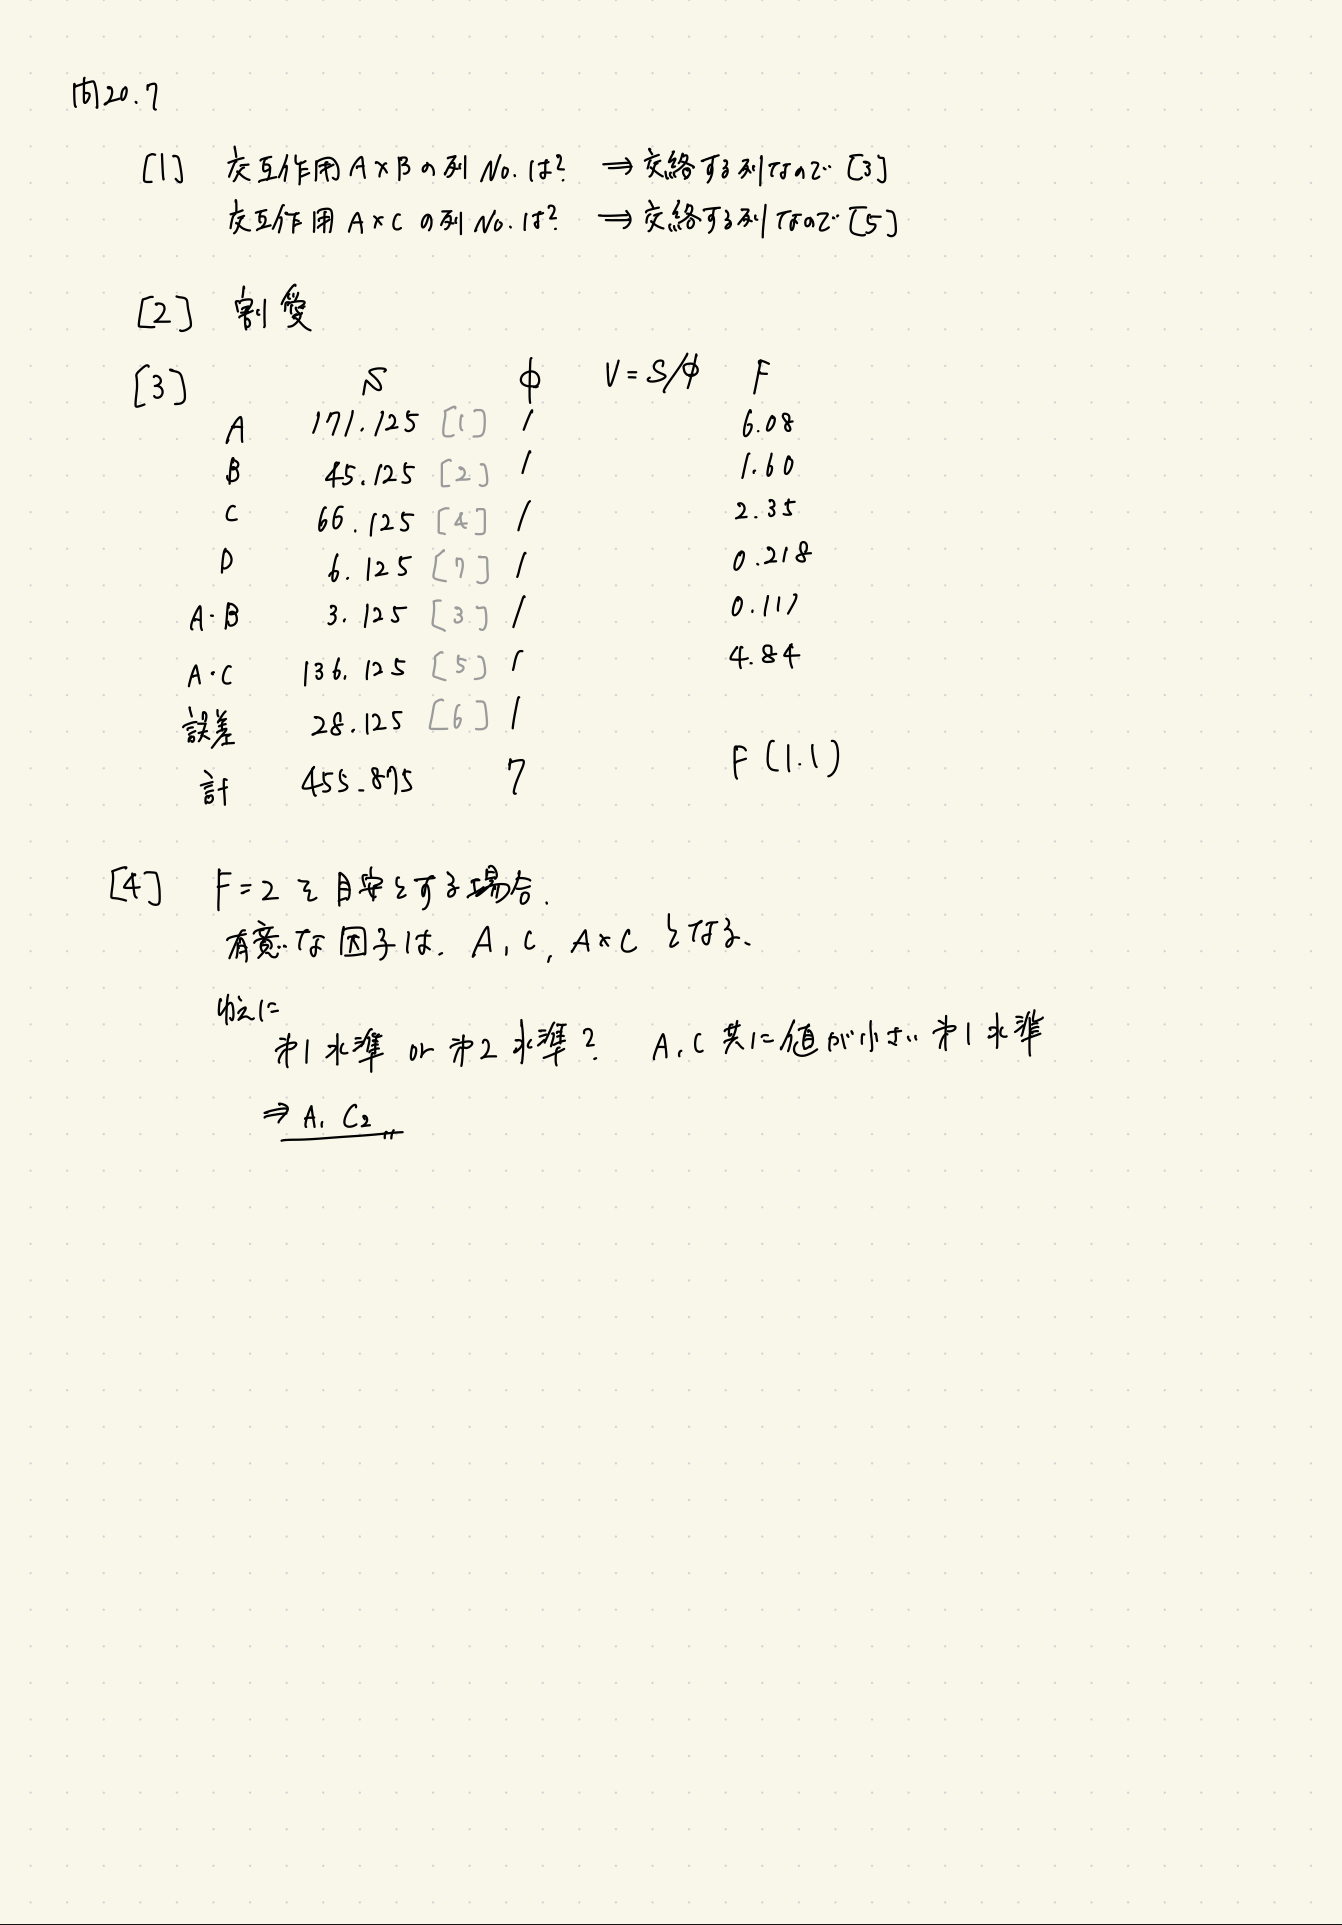 問20.7
[1] 交互作用A×Bの列No.は? ⇒交絡する列なので[3]
交互作用A×Cの列No.は? ⇒交絡する列なので[5]
[2] 割愛
[3] S φ V=S/φ F
A 171.125 [1] 1 6.08
B 45.125 [2] 1 1.60
C 66.125 [4] 1 2.35
D 6.125 [7] 1 0.218
A・B 3.125 [3] 1 0.117
A・C 136.125 [5] 1 4.84
誤差 28.125 [6] 1
計 455.875 7 F(1.1)
[4] F=2を目安とする場合.
有意な因子は. A, C, A×Cとなる.
次に
第1水準 or 第2水準? A, C 共に値が小さい第1水準
⇒ A₁ C₂〃